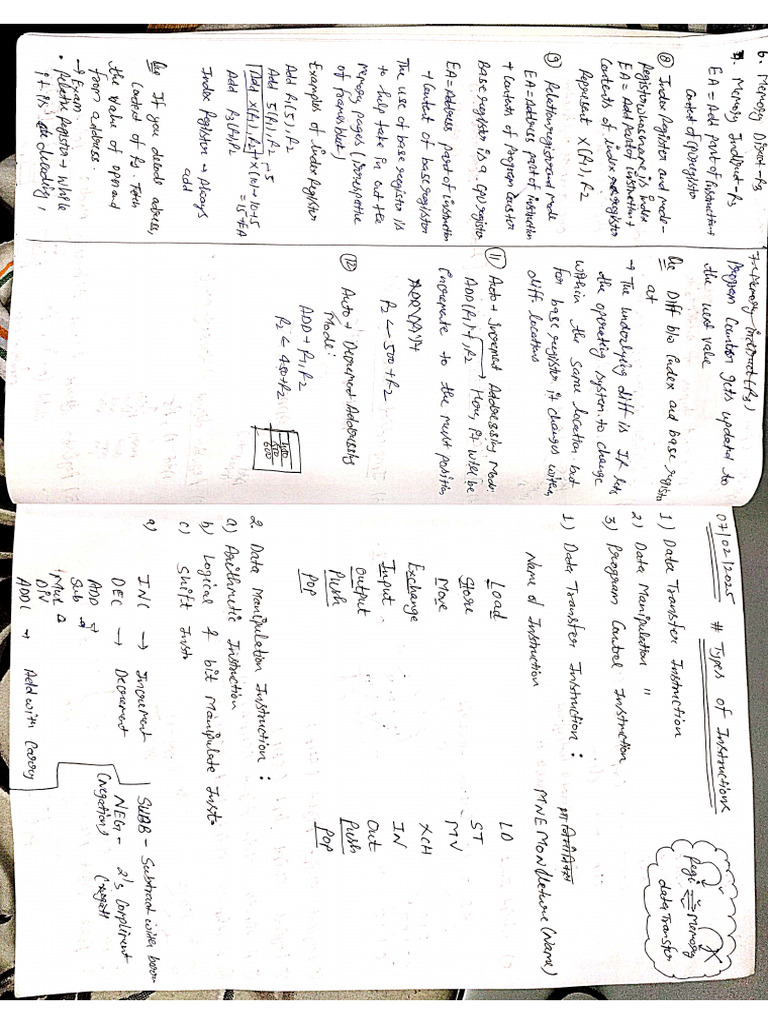 6. Memory Direct - Rs
EA = Add part of Instruction +
Content of CPU register
7. Memory Indirect - Rs
⑧ Index Register and mode -
Register, whose name is index
EA = Add part of Instruction +
Contents of index register
Represent X(R1), R2
⑨ Relative register and mode
EA = Address part of instruction
+ Contents of Program Counter
Base register is a CPU register
EA = Address part of instruction
+ Content of base register
The use of base register is
to help take in out the
memory pages (Irrespective
of frames block)
Examples of Index Register
Add R1(5), R2
Add 5(R1), R2 → 5
Add X(R1), R2 → X(10) → 10+5
= 15 EA
Add R3(R1), R2
Index Register → Always
add
Que If you decode adress,
Content of Rs. Fetch
the value of operand
from address.
→ Exam
• Relative Register → While
it is decoding,
7. Memory Indirect (Rs)
Program Counter gets updated to
the next value
Que Diff b/w index and base register
at
→ The underlying diff is IR lets
the operating system to change
within the same location but
for base register it changes within
diff. locations
⑪ Auto + Increment Addressing Mode:
ADD (R1)+, R2 → Here, it will be
increment to the next position
R2 ← 500 + R2
⑫ Auto + Decrement Addressing
Mode:
ADD + R1, R2
R2 ← 450 + R2
400
450
600
07/02/2025
# Types of Instructions
1) Data Transfer Instruction
2) Data Manipulation "
3) Program Control Instruction
Regi ⇌ Memory
data Transfer
1) Data Transfer Instruction :
Name of Instruction
(Name)
Load LD
Store ST
Move MV
Exchange XCH
Input IN
Output Out
Push Push
Pop Pop
2. Data Manipulation Instruction :
a) Arithmetic Instruction
b) Logical & bit Manipulate Instr
c) Shift Instr
a) INC → Increment
DEC → Decrement
ADD
Sub
Mul
DIV
ADDC → Add with Carry
SUBB - Subtract with borrow
NEG - 2's Compliment
(Negation)